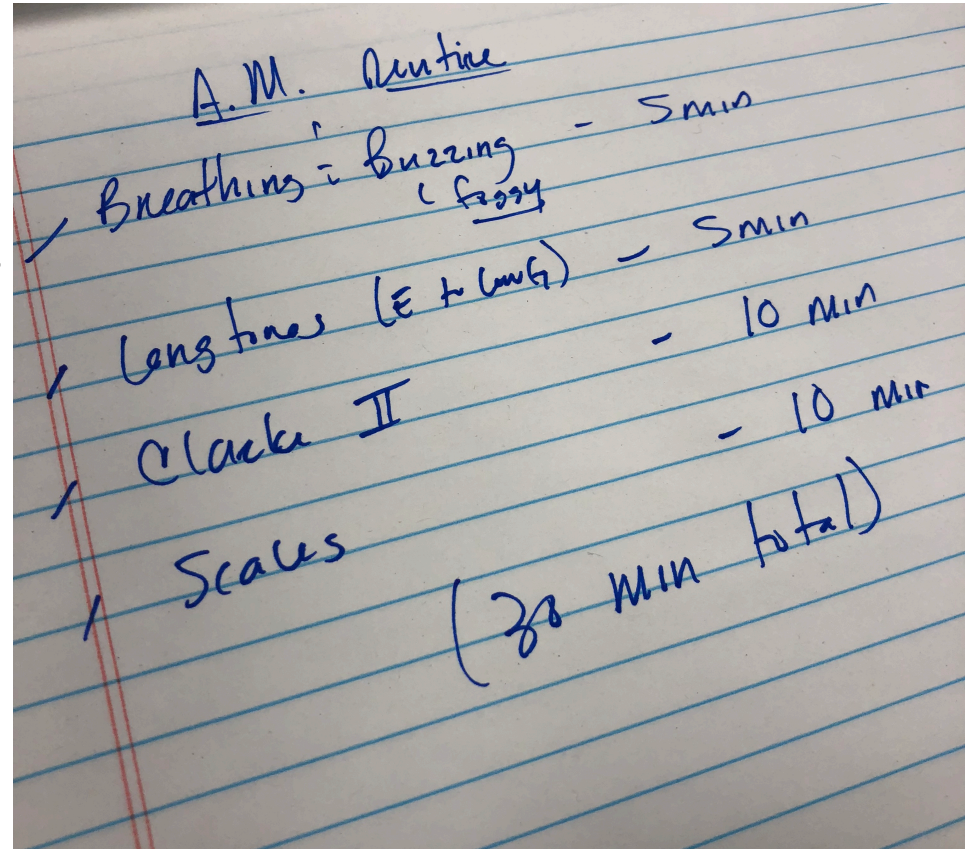 A.M. Routine
Breathing : Buzzing - 5 min
( foggy
Long tones (E to low G) - 5 min
Clarke II - 10 min
Scales - 10 min
(30 min total)